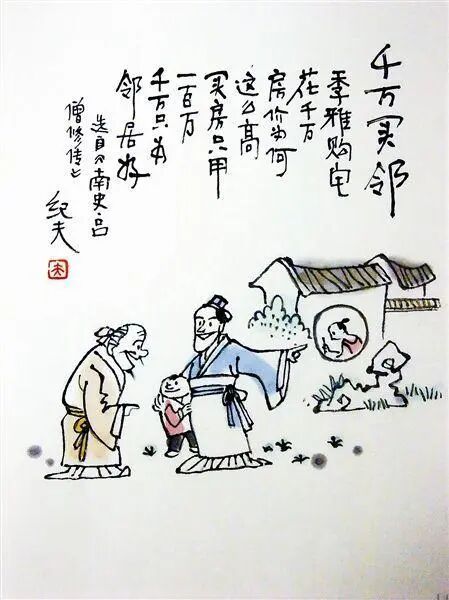 千万买邻
季雅购宅
花千万
房价为何
这么高
买房只用
一百万
千万只为
邻居好
选自《南史·吕
僧修传》
纪夫
夫